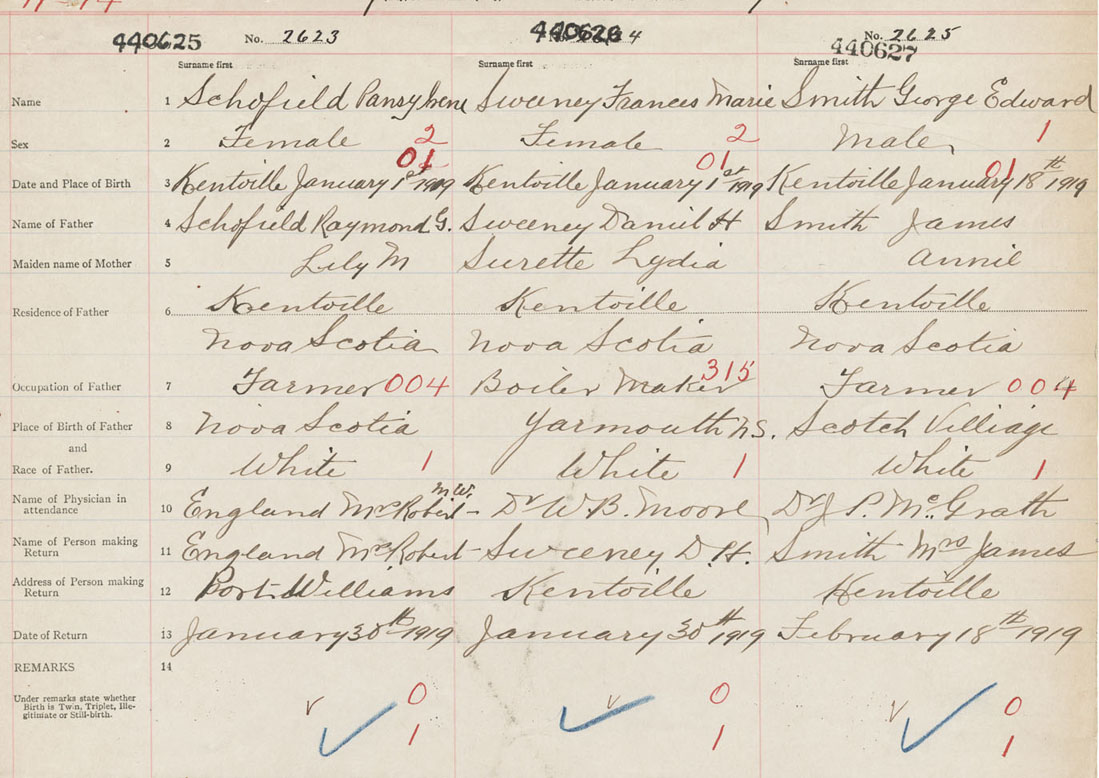 440625 No. 2623 440626 4 No. 2625
440627
Surname first Surname first Surname first
Name 1 Schofield Pansy Irene Sweeney Frances Marie Smith George Edward
Sex 2 Female 2 Female 2 Male 1
01 01 01
Date and Place of Birth 3 Kentville January 1st 1919 Kentville January 1st 1919 Kentville January 18th 1919
Name of Father 4 Schofield Raymond G. Sweeney Daniel H Smith James
Maiden name of Mother 5 Lily M Surette Lydia Annie
Residence of Father 6 Kentville Kentville Kentville
Nova Scotia Nova Scotia Nova Scotia
Occupation of Father 7 Farmer 004 Boiler Maker 315 Farmer 004
Place of Birth of Father 8 Nova Scotia Yarmouth N.S. Scotch Villiage
and
Race of Father. 9 White 1 White 1 White 1
Name of Physician in
attendance 10 England Mrs Robert M.W. Dr W B. Moore Dr J. P. McGrath
Name of Person making
Return 11 England Mrs Robert Sweeney D. H. Smith Mrs James
Address of Person making
Return 12 Port Williams Kentville Kentville
Date of Return 13 January 30th 1919 January 30th 1919 February 18th 1919
REMARKS 14
Under remarks state whether
Birth is Twin, Triplet, Ille-
gitimate or Still-birth.
0 0 0
1 1 1